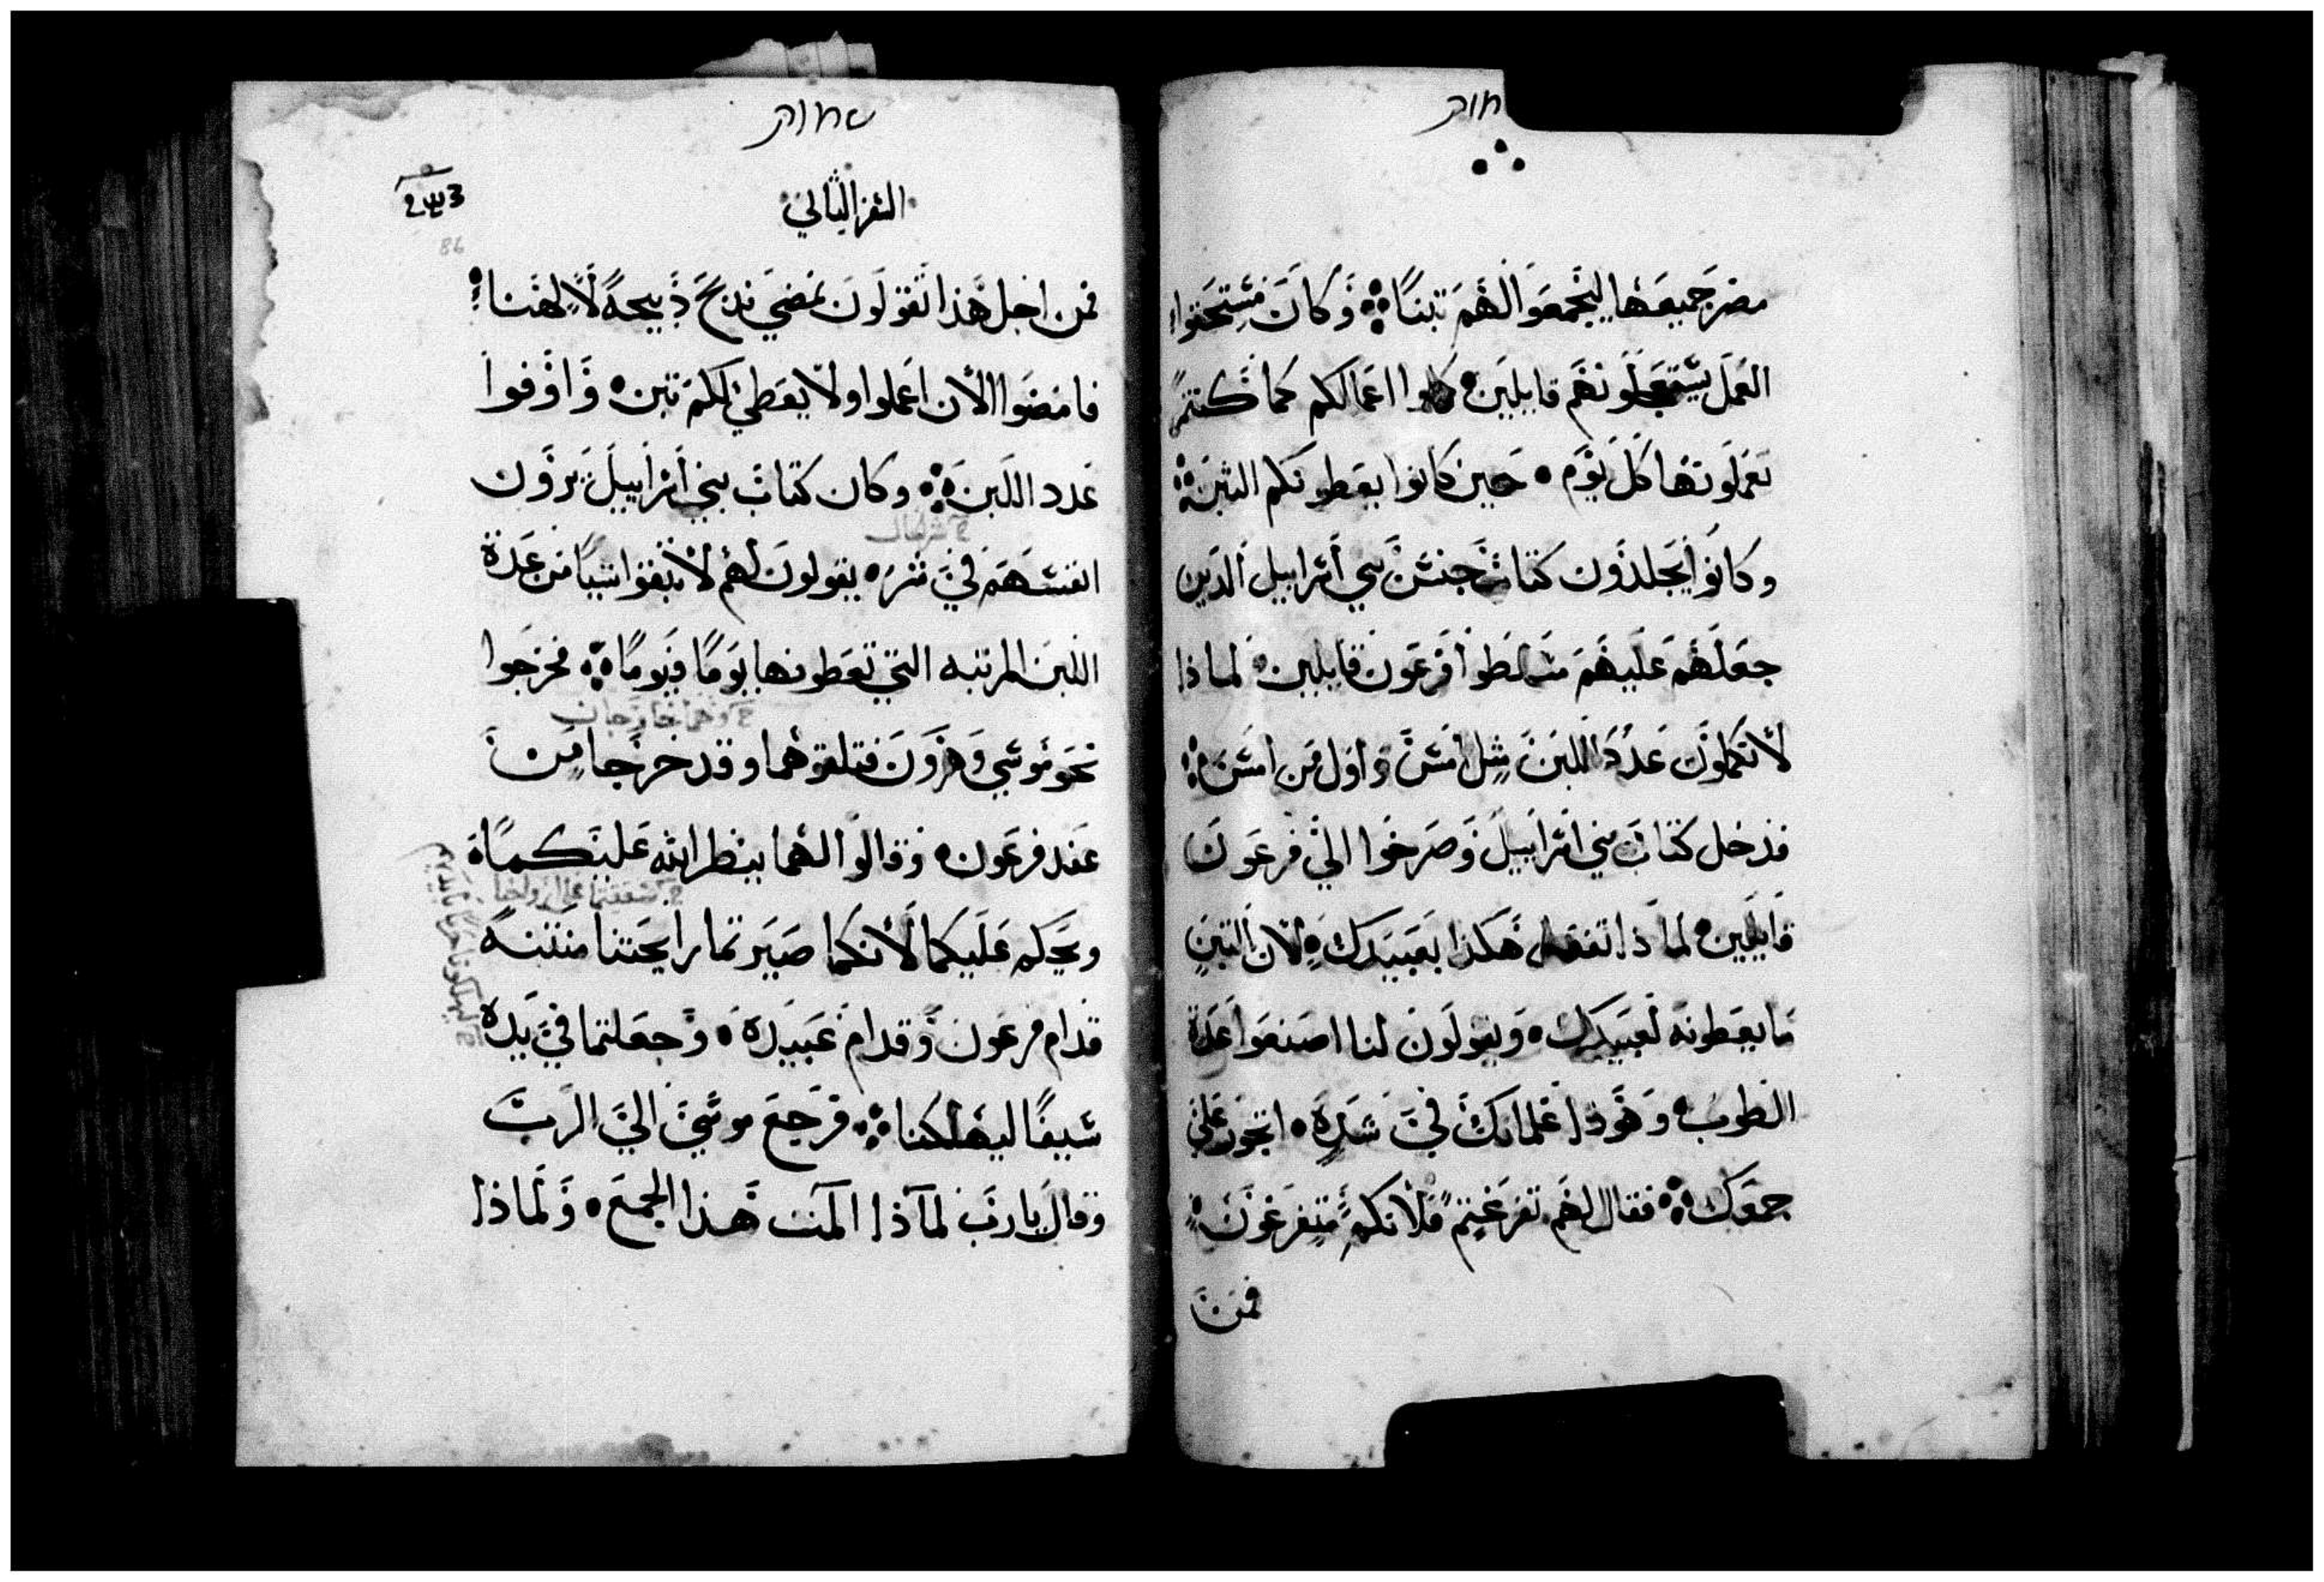 שמות
مصر جميعها ليجمعوا لهم تبنا ۞ وكان مستحثوا
العمل يستعجلونهم قايلين كملوا اعمالكم كما كنتم
تعملونها كل يوم ٠ حين كانوا يعطونكم التبن ۞
وكانوا يجلدون كتاب جنس بني اسراييل الذين
جعلهم عليهم متسلطوا فرعون قايلين لماذا
لا تكملون عدد اللبن مثل امس واول من امس ۞
فدخل كتاب بني اسراييل وصرخوا الي فرعون
قايلين لماذا تفعل هكذا بعبيدك لان التبن
ما يعطونه لعبيدك ٠ ويقولون لنا اصنعوا عدة
الطوب وهوذا غلمانك في شده ٠ اتجور علي
جمعك ۞ فقال لهم تفرغتم فلانكم متفرغون
فمن
שמות
السفر الثاني
86
فمن اجل هذا تقولون نمضي نذبح ذبيحة لالهنا
فامضوا الان اعملوا ولا يعطي لكم تبن ٠ واوفوا
عدد اللبن ۞ وكان كتاب بني اسراييل يرون
انفسهم في شر ٠ يقولون لهم لا تنقوا شيا من عدة
اللبن المرتبه التي تعطونها يوما فيوما ۞ فخرجوا
نحو موسي وهرون فتلقوهما وقد خرجا من
عند فرعون ٠ وقالوا لهما ينظر الله عليكما
ويحكم عليكما لانكما صيرتما رايحتنا منتنه
قدام فرعون وقدام عبيده ٠ وجعلتما في يده
سيفا ليهلكنا ۞ فرجع موسي الي الرب
وقال يا رب لماذا المت هذا الجمع ٠ ولماذا